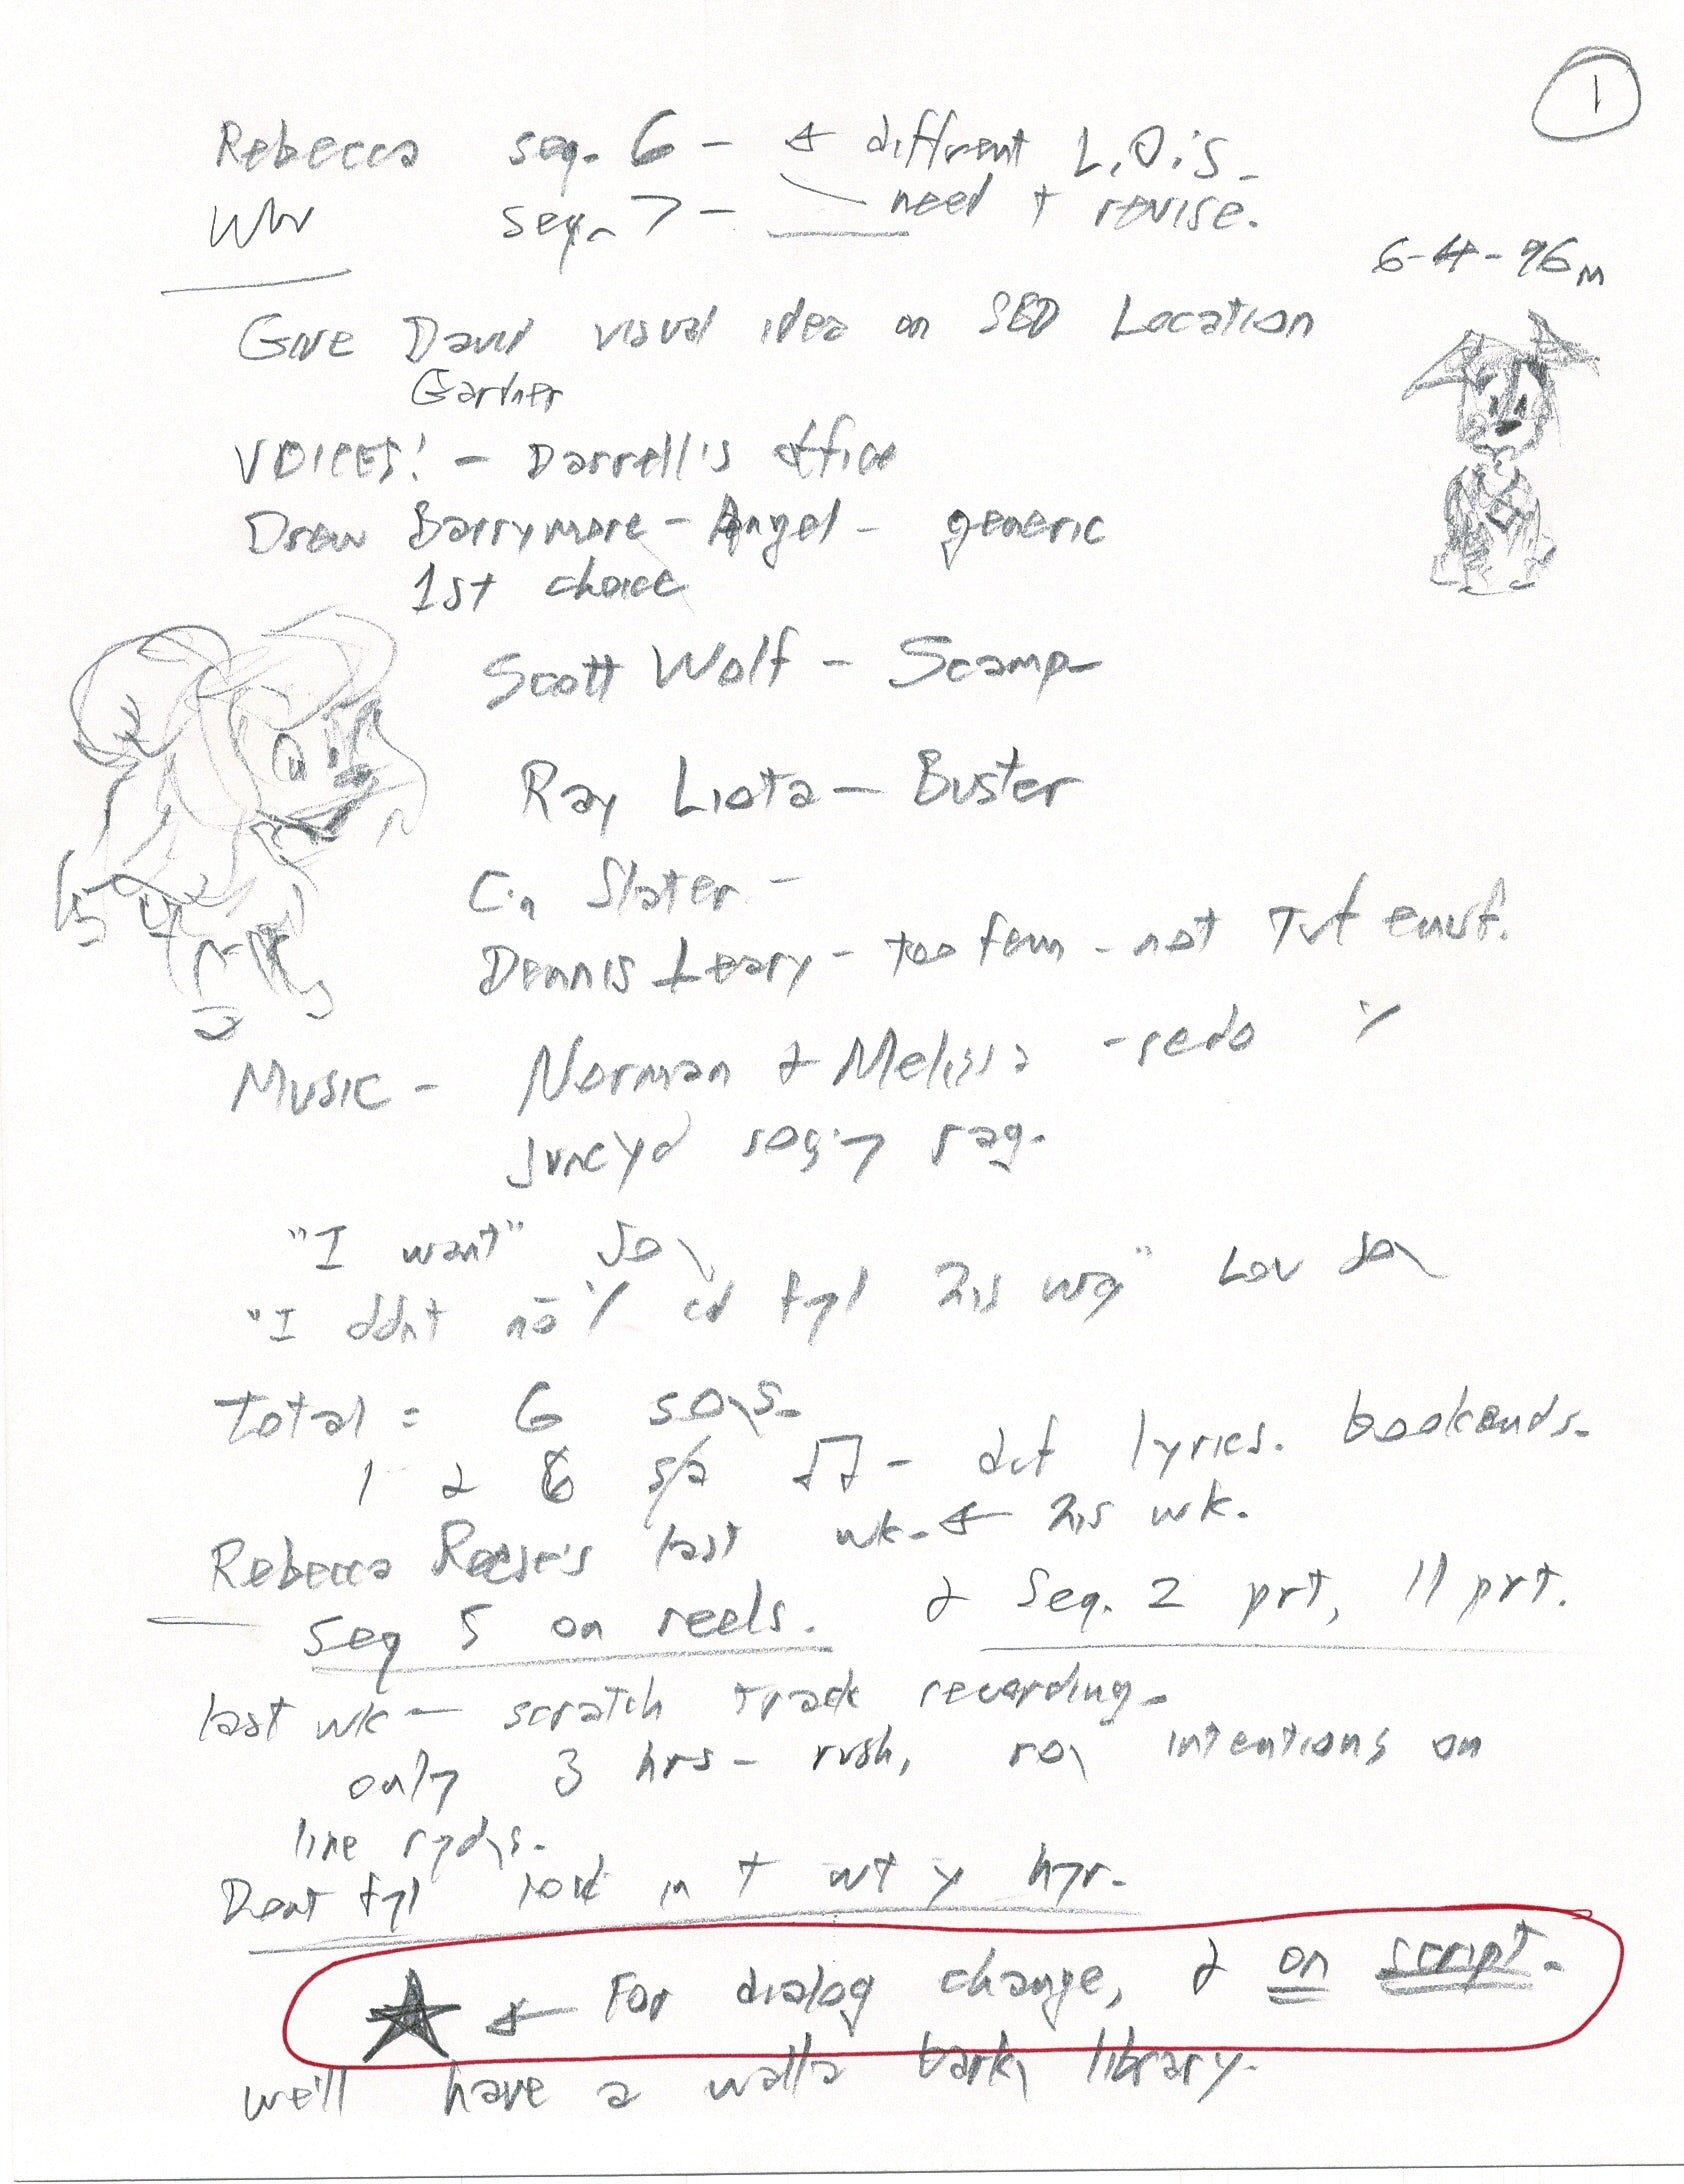 1
Rebecca seq. 6 - ← different L.O.'s -
WW seq. 7 - need + revise.
6-4-96 M
Give David visual idea on SBD Location
Gardner
VOICES! - Darrell's office
Drew Barrymore - Angel - generic
1st choice
Scott Wolf - Scamp
Ray Liota - Buster
C.n Slater -
Dennis Leary - too fem - not
Music - Norman & Melissa - redo
Juncyd rag.
"I want" So\
"I ddnt no % cd fyl wa" Lov So\
total = 6 so\s.
1 & 6 lyrics. bookends.
Rebecca Reese's last wk. ← wk.
Seq 5 on reels. & Seq. 2 prt, 11 prt.
last wk - scratch track recording -
only 3 hrs - rush, ro\ intentions on
line
Dont fyl
★ ← For dialog change, & on script.
we'll have a walla bark\ library.